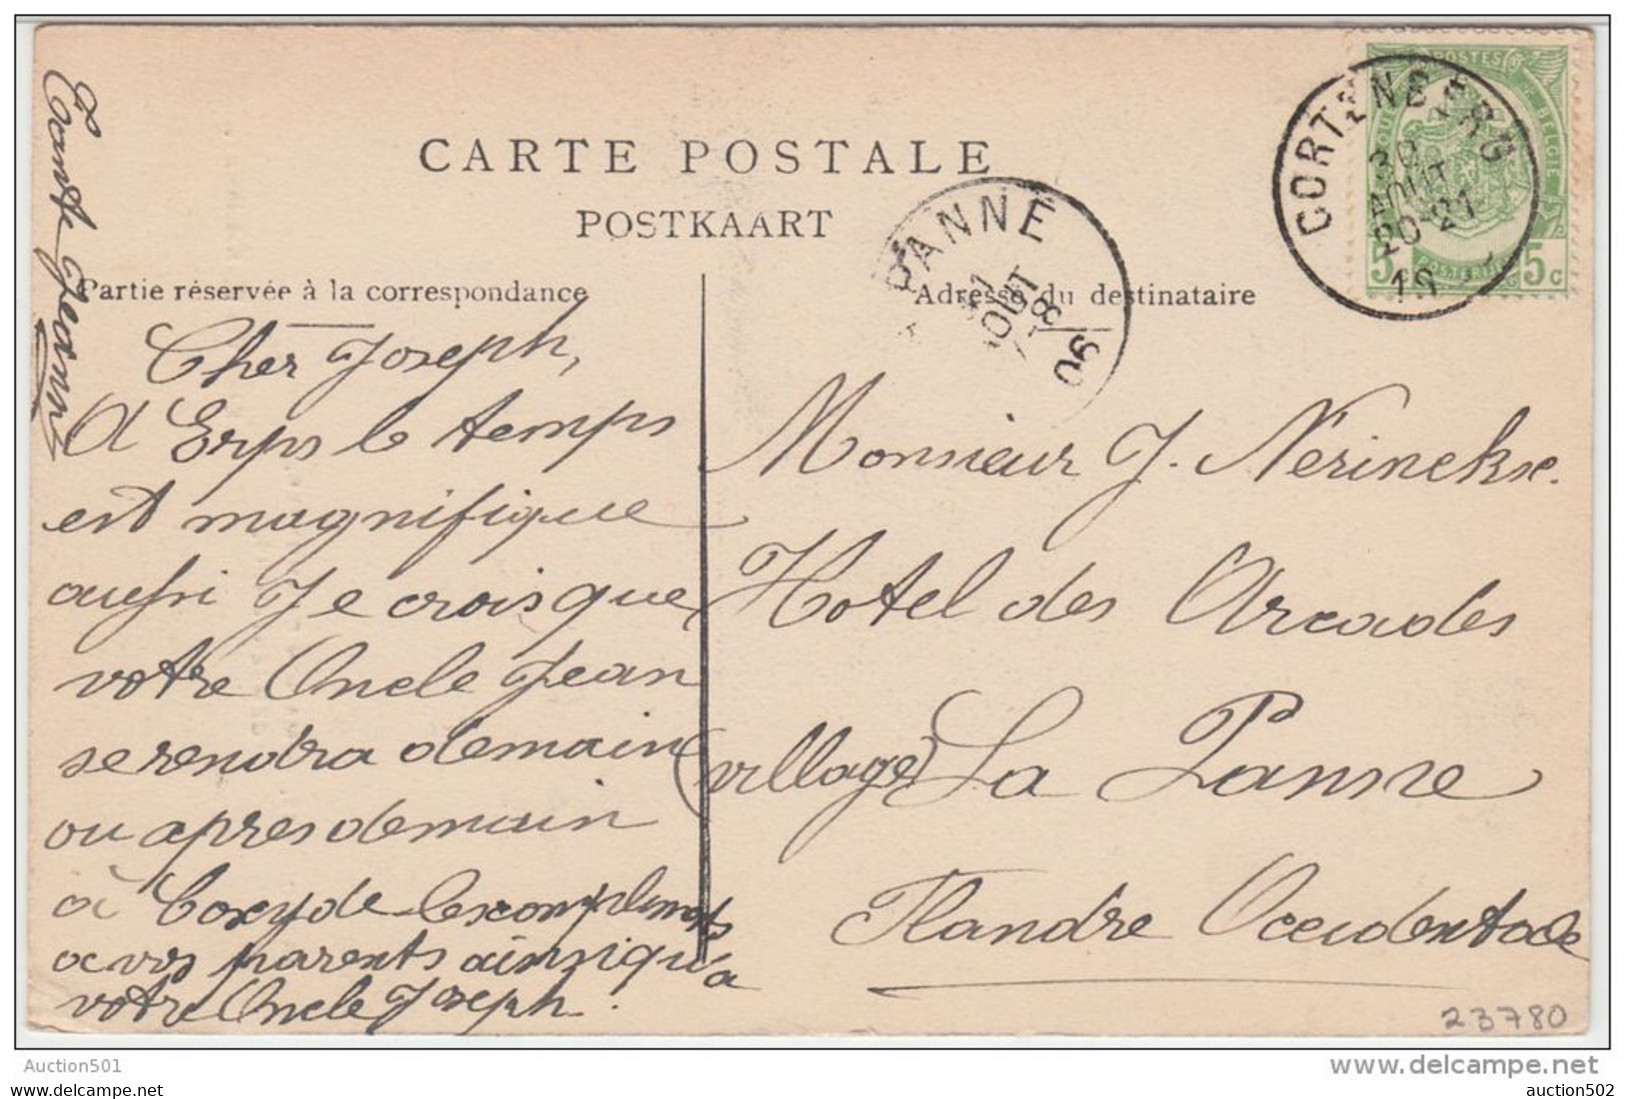 CARTE POSTALE
POSTKAART
Partie réservée à la correspondance
Adresse du destinataire
CORTENBERG
30
AOUT
20-21
19
POSTES
BELGIE
5 5c
PANNE
31
AOUT
8
Cher Joseph,
A Erps le temps
est magnifique
aussi Je crois que
votre Oncle Jean
se rendra demain
ou apres demain
à Coxyde les compliments
a vos parents ainsi qu'a
votre Oncle Joseph.
Tante Jeanne
Monsieur J. Nerinckx.
Hotel des Arcades
(village) La Panne
Flandre Occidentale
23780
Auction501
www.delcampe.net
auction502